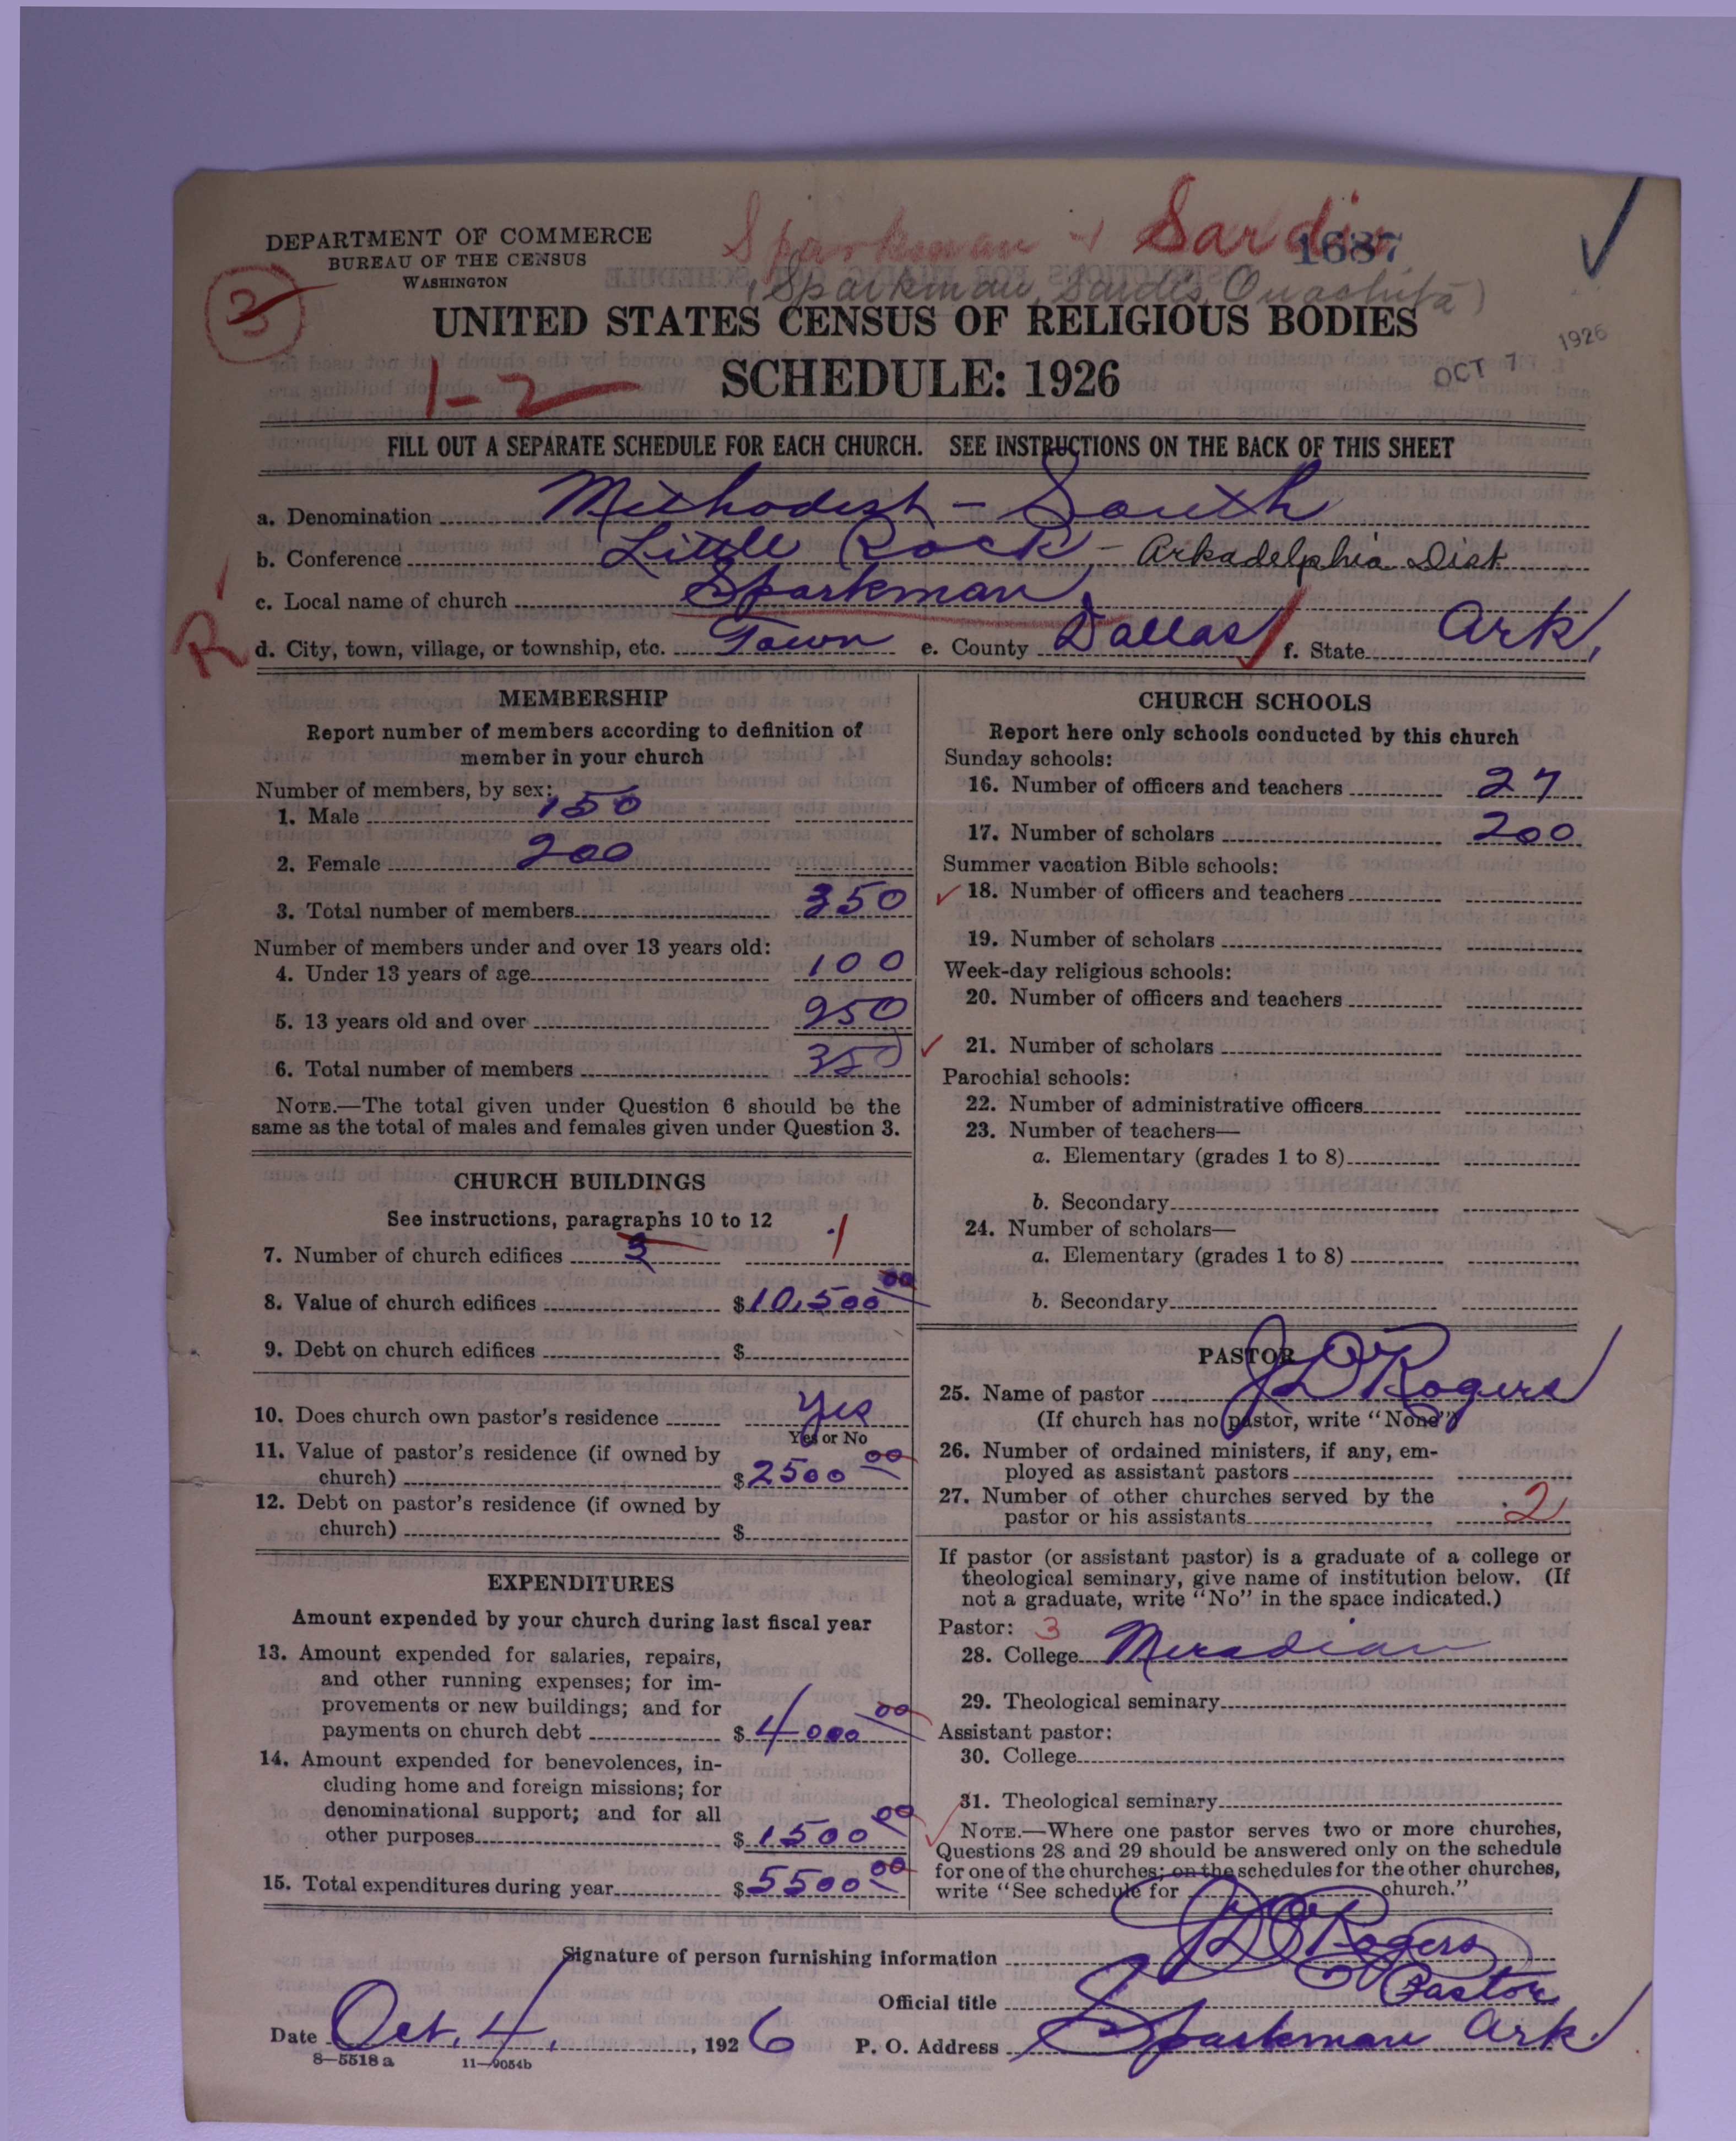 DEPARTMENT OF COMMERCE
BUREAU OF THE CENSUS
WASHINGTON
Sparkman & Sardis
1687
(Sparkman, Sardis, Ouachita)
3
UNITED STATES CENSUS OF RELIGIOUS BODIES
SCHEDULE: 1926
1-2
OCT 7 1926
FILL OUT A SEPARATE SCHEDULE FOR EACH CHURCH. SEE INSTRUCTIONS ON THE BACK OF THIS SHEET
a. Denomination Methodist - South
b. Conference Little Rock - Arkadelphia Dist
c. Local name of church Sparkman
R
d. City, town, village, or township, etc. Town e. County Dallas f. State Ark,
MEMBERSHIP
Report number of members according to definition of
member in your church
Number of members, by sex:
1. Male 150
2. Female 200
3. Total number of members 350
Number of members under and over 13 years old:
4. Under 13 years of age 100
5. 13 years old and over 250
6. Total number of members 350
NOTE.—The total given under Question 6 should be the
same as the total of males and females given under Question 3.
CHURCH BUILDINGS
See instructions, paragraphs 10 to 12
7. Number of church edifices 3 1
8. Value of church edifices $10,500 00
9. Debt on church edifices $
10. Does church own pastor's residence Yes
Yes or No
11. Value of pastor's residence (if owned by
church) $2500 00
12. Debt on pastor's residence (if owned by
church) $
EXPENDITURES
Amount expended by your church during last fiscal year
13. Amount expended for salaries, repairs,
and other running expenses; for im-
provements or new buildings; and for
payments on church debt $4000 00
14. Amount expended for benevolences, in-
cluding home and foreign missions; for
denominational support; and for all
other purposes $1500 00
15. Total expenditures during year $5500 00
CHURCH SCHOOLS
Report here only schools conducted by this church
Sunday schools:
16. Number of officers and teachers 27
17. Number of scholars 200
Summer vacation Bible schools:
18. Number of officers and teachers
19. Number of scholars
Week-day religious schools:
20. Number of officers and teachers
21. Number of scholars
Parochial schools:
22. Number of administrative officers
23. Number of teachers—
a. Elementary (grades 1 to 8)
b. Secondary
24. Number of scholars—
a. Elementary (grades 1 to 8)
b. Secondary
PASTOR
25. Name of pastor J D Rogers
(If church has no pastor, write "None")
26. Number of ordained ministers, if any, em-
ployed as assistant pastors
27. Number of other churches served by the
pastor or his assistants 2
If pastor (or assistant pastor) is a graduate of a college or
theological seminary, give name of institution below. (If
not a graduate, write "No" in the space indicated.)
Pastor: 3
28. College Meradian
29. Theological seminary
Assistant pastor:
30. College
31. Theological seminary
NOTE.—Where one pastor serves two or more churches,
Questions 28 and 29 should be answered only on the schedule
for one of the churches; on the schedules for the other churches,
write "See schedule for church."
Signature of person furnishing information J D Rogers
Official title Pastor
Date Oct. 4, 1926 P. O. Address Sparkman Ark.
8—5518 a 11—9054b